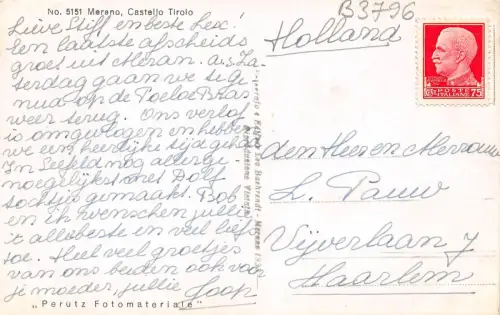 No. 5151 Merano, Castello Tirolo
B3796
Lieve Stijf en beste Lex!
Een laatste afscheids
groet uit Meran. a.s. Za-
terdag gaan we te ge-
nua op de Poeloe Bras
weer terug. Ons verlof
is omgevlogen en hebben
we een heerlijke tijd gehad
In Seefeld nog allerge-
noegelijkst met Dolf
tochtjes gemaakt. Bob
en ik wenschen jullie
't allerbeste en veel liefs
toe. Heel veel groetjes
van ons beiden ook voor
je moeder, jullie Joop
"Perutz Fotomateriale"
Leo Baehrendt - Merano
Holland
POSTE
ITALIANE
75
den Heer en Mevrouw
L. Pauw
Vijverlaan 7
Haarlem